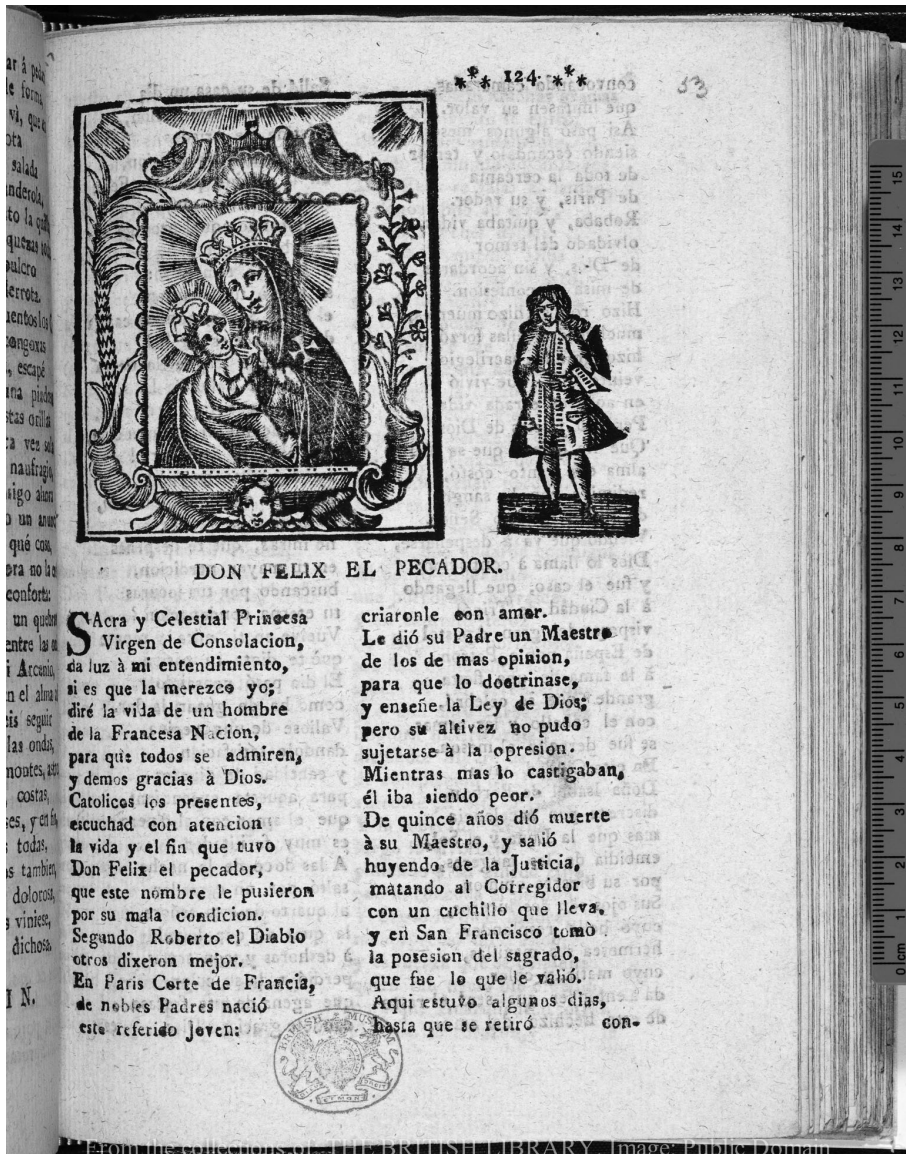 124.
53
DON FELIX EL PECADOR.
SAcra y Celestial Princesa
Virgen de Consolacion,
da luz à mi entendimiento,
si es que la merezco yo;
diré la vida de un hombre
de la Francesa Nacion,
para que todos se admiren,
y demos gracias à Dios.
Catolicos los presentes,
escuchad con atencion
la vida y el fin que tuvo
Don Felix el pecador,
que este nombre le pusieron
por su mala condicion.
Segundo Roberto el Diablo
otros dixeron mejor.
En Paris Corte de Francia,
de nobles Padres nació
este referido joven:
criaronle con amor.
Le dió su Padre un Maestro
de los de mas opinion,
para que lo doctrinase,
y enseñe la Ley de Dios;
pero su altivez no pudo
sujetarse à la opresion.
Mientras mas lo castigaban,
él iba siendo peor.
De quince años dió muerte
à su Maestro, y salió
huyendo de la Justicia,
matando al Corregidor
con un cuchillo que lleva,
y en San Francisco tomò
la posesion del sagrado,
que fue lo que le valió.
Aqui estuvo algunos dias,
hasta que se retiró con-
BRITISH MUSEUM
From the collections of THE BRITISH LIBRARY Image: Public Domain